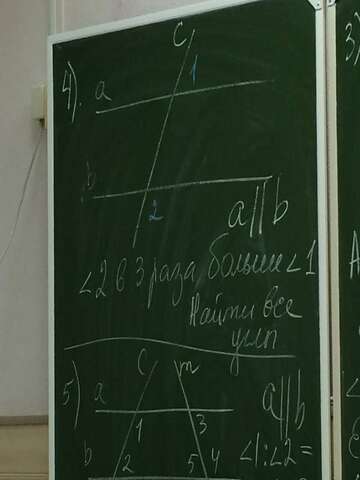 4).
c
1
a
b
2
a||b
∠2 в 3 раза больше ∠1
Найти все
углы
5)
c m
a
a||b
1 3
b
2 5 4
∠1:∠2=
3)